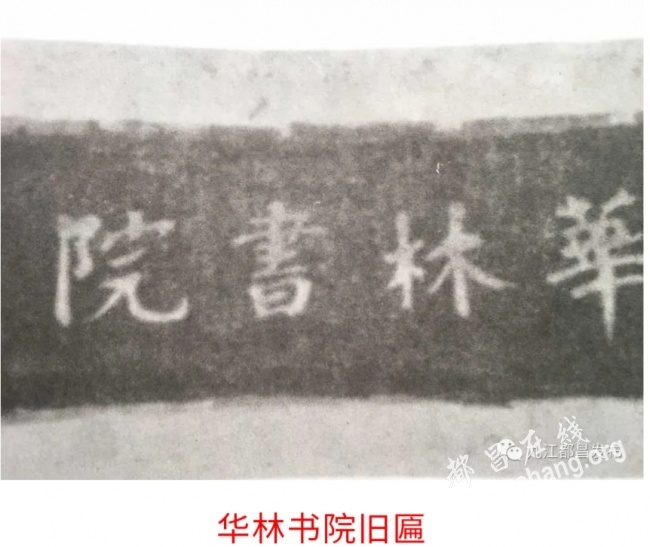 華林書院
都昌在线
九江都昌发布
hang.org
华林书院旧匾